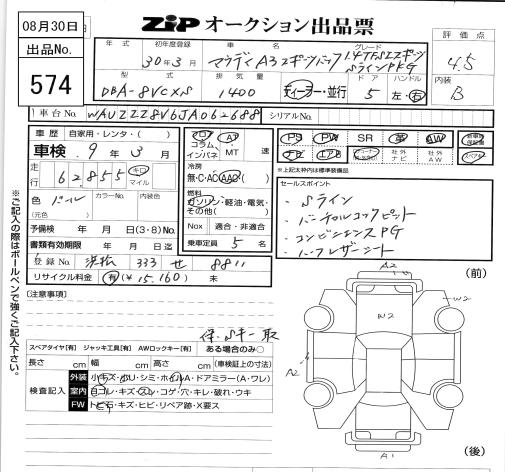 08月30日
出品No.
574
ZIP オークション出品票
評価点
4.5
内装
B
年式 初年度登録 車名 グレード
30年3月 アウディA3スポーツバック 1.4TFSIスポーツ
SラインPKG
型式 排気量 ドア ハンドル
DBA-8VCXS 1400 ディーラー・並行 5 左・右
車台No. WAUZZZ8V6JA062688 シリアルNo.
車歴 自家用・レンタ・( )
車検 9年3月
走行 62,855 キロ マイル
色 パール カラーNo. 内装色
(元色 )
予備検 年 月 日(3・8)No.
書類有効期限 年 月 日迄
登録No. 浜松 333 せ 8811
リサイクル料金 有(¥15,160) 未
フロア コラム インパネ A3 MT 速
冷房
無・C・AC・AAC( )
燃料
ガソリン・軽油・電気・その他( )
Nox 適合・非適合
乗車定員 5 名
PS PW SR 革 AW 新車時保証書
ナビ エアB 社外ナビ 社外AW スペアキー
※上記太枠内は標準装備品
セールスポイント
・Sライン
・バーチャルコックピット
・コンビニエンスPG
・ハーフレザーシート
(注意事項)
保、Sキー 取
スペアタイヤ[有] ジャッキ工具[有] AWロックキー[有] ある場合のみ○
長さ cm 幅 cm 高さ cm (車検証上の寸法)
検査記入
外装 小キズ・小凹・シミ・ホイルA・ドアミラー(A・ワレ)
室内 ヨゴレ・キズ・スレ・コゲ・穴・キレ・破れ・ウキ
FW トビ石・キズ・ヒビ・リペア跡・X要ス
※ご記入の際はボールペンで強くご記入下さい。
(前)
A2
W2
W2
A2
A1
(後)